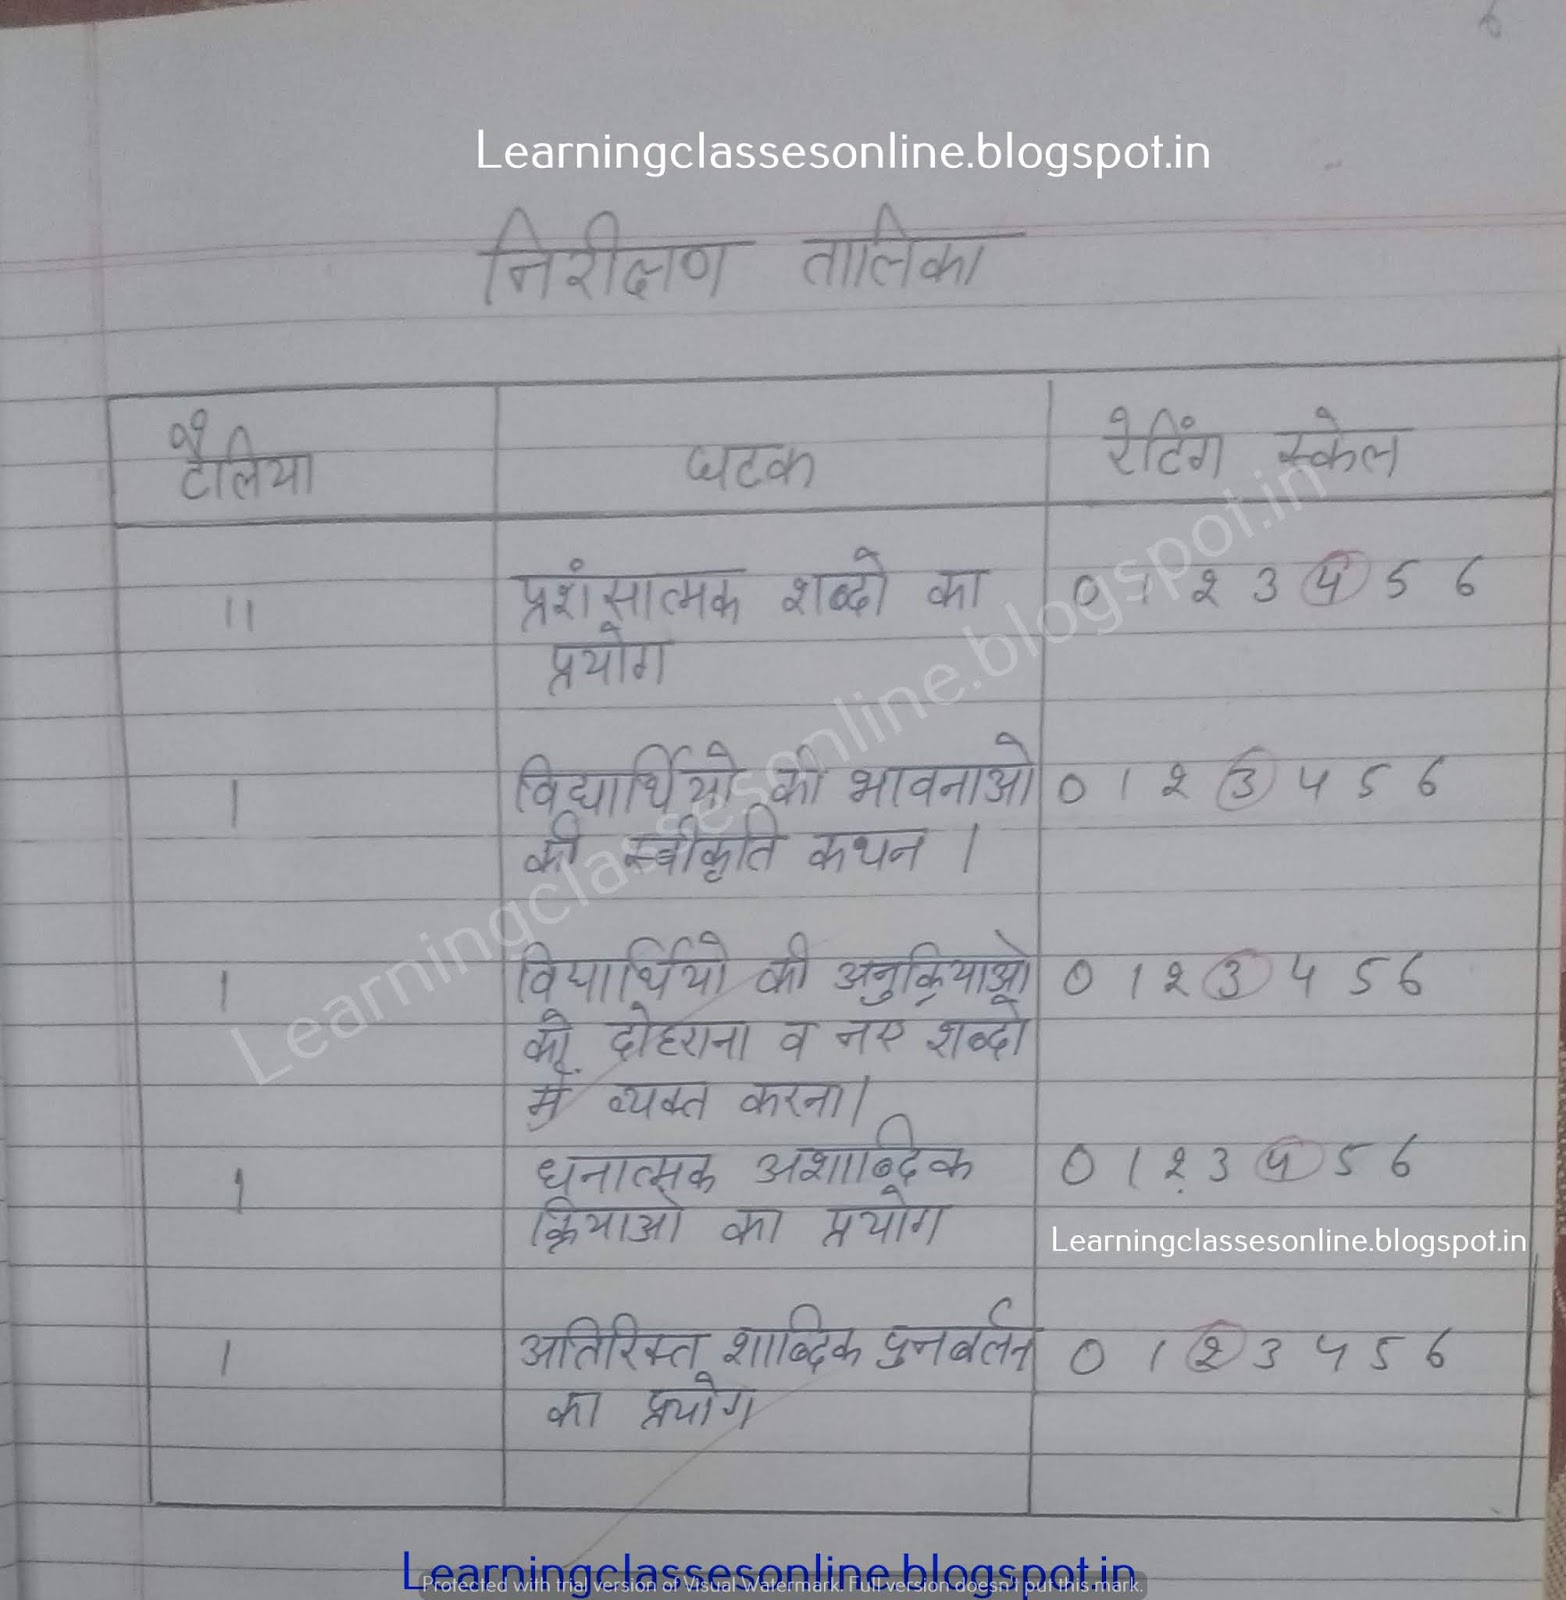 Learningclassesonline.blogspot.in
निरीक्षण तालिका
टैलिया घटक रेटिंग स्केल
11 प्रशंसात्मक शब्दो का 0 1 2 3 4 5 6
प्रयोग
1 विद्यार्थियो की भावनाओ 0 1 2 3 4 5 6
की स्वीकृति कथन ।
1 विद्यार्थियो की अनुक्रियाओ 0 1 2 3 4 5 6
को दोहराना व नए शब्दो
में व्यक्त करना।
1 धनात्मक अशाब्दिक 0 1 2 3 4 5 6
क्रियाओ का प्रयोग
Learningclassesonline.blogspot.in
1 अतिरिक्त शाब्दिक पुनबर्लन 0 1 2 3 4 5 6
का प्रयोग
Learningclassesonline.blogspot.in
Learningclassesonline.blogspot.in
Protected with trial version of Visual Watermark. Full version doesn't put this mark.